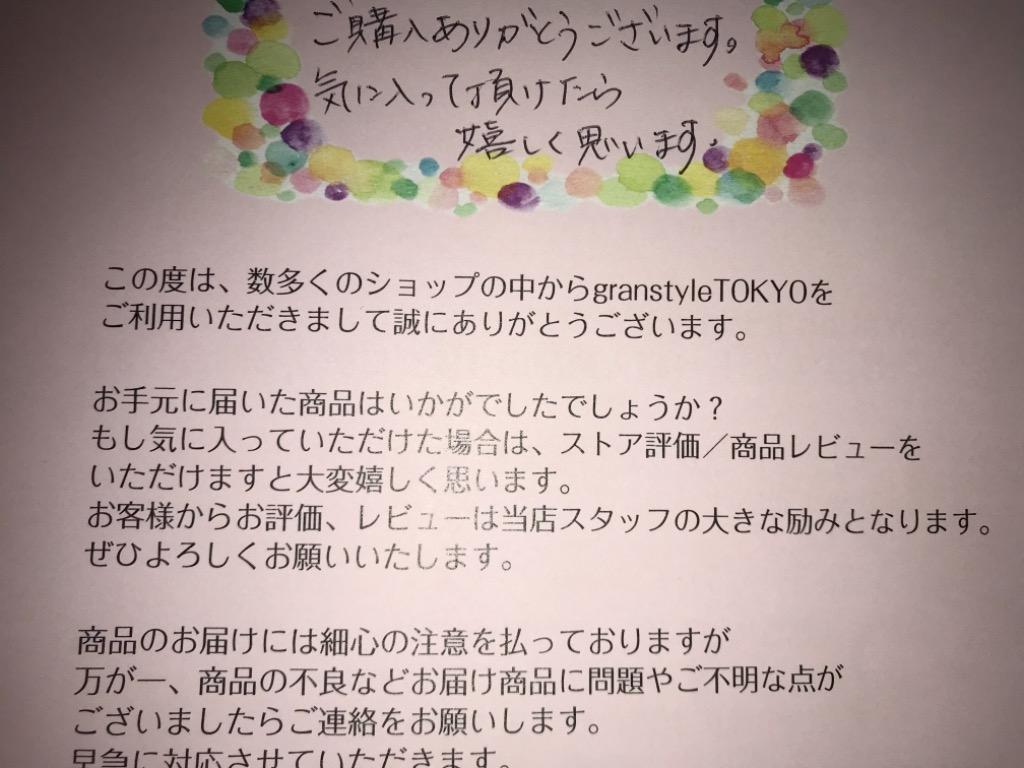 ご購入ありがとうございます。
気に入って頂けたら
嬉しく思います.
この度は、数多くのショップの中からgranstyleTOKYOを
ご利用いただきまして誠にありがとうございます。
お手元に届いた商品はいかがでしたでしょうか？
もし気に入っていただけた場合は、ストア評価／商品レビューを
いただけますと大変嬉しく思います。
お客様からお評価、レビューは当店スタッフの大きな励みとなります。
ぜひよろしくお願いいたします。
商品のお届けには細心の注意を払っておりますが
万が一、商品の不良などお届け商品に問題やご不明な点が
ございましたらご連絡をお願いします。
早急に対応させていただきます。